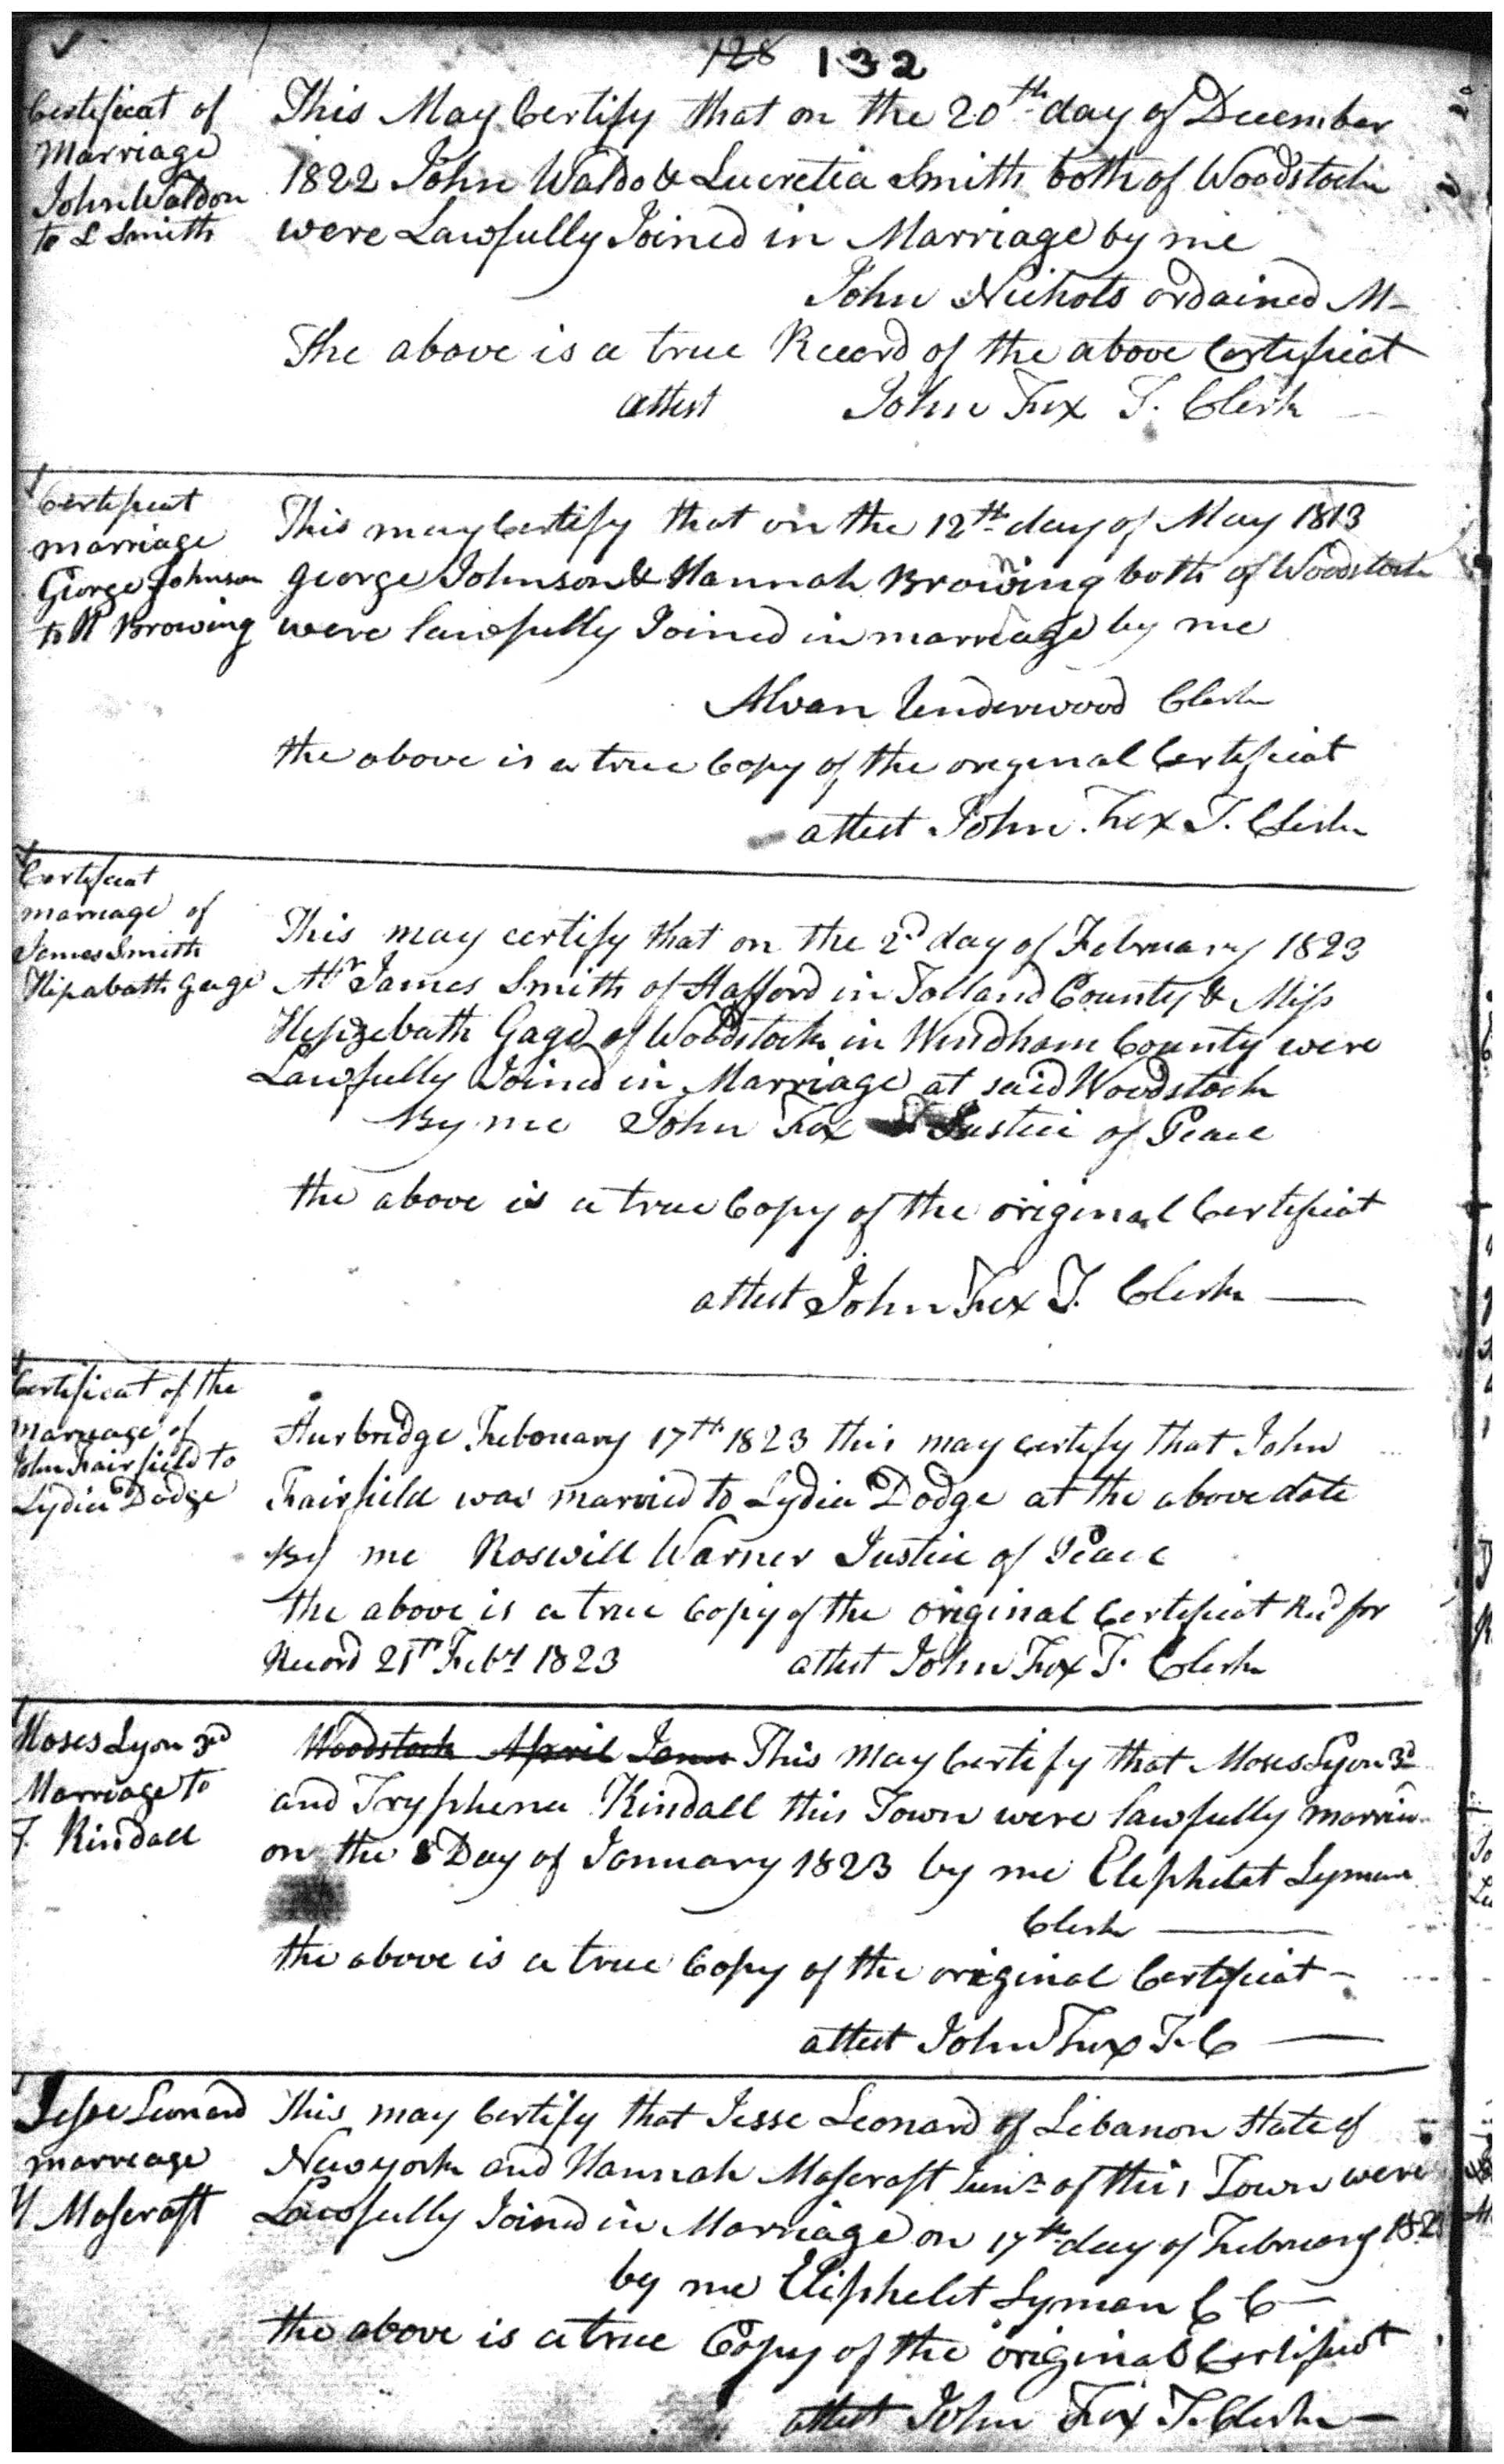 128 132
Certificat of
Marriage
John Waldon
to L Smith
This May Certify that on the 20th day of December
1822 John Waldo & Lucretia Smith both of Woodstock
were Lawfully Joined in Marriage by me
John Nichols ordained M-
The above is a true Record of the above Certificat
attest John Fox T. Clerk
Certificat
marriage
George Johnson
to H Browing
This may Certify that on the 12th day of May 1813
George Johnson & Hannah Browing both of Woodstock
were lawfully Joined in marriage by me
Alvan Underwood Clerk
the above is a true Copy of the original Certificat
attest John Fox T. Clerk
Certificat
marriage of
James Smith
Hipabath Gage
This may certify that on the 2d day of February 1823
Mr James Smith of Stafford in Tolland County & Miss
Hepzebath Gage of Woodstock in Windham County were
Lawfully Joined in Marriage at said Woodstock
By me John Fox Justice of Peace
the above is a true Copy of the original Certificat
attest John Fox T. Clerk —
Certificat of the
marriage of
John Fairfield to
Lydia Dodge
Sturbridge Febouary 17th 1823 this may certify that John
Fairfield was married to Lydia Dodge at the above date
By me Roswill Warner Justice of Peace
the above is a true Copy of the original Certificat Recd for
Record 21th Feby 1823 attest John Fox T. Clerk
Moses Lyon 3rd
Marriage to
T. Kindall
Woodstock April This May Certify that Moses Lyon 3d
and Tryphena Kindall this Town were lawfully married
on the 8 Day of January 1823 by me Elephelet Lyman
Clerk —
the above is a true Copy of the original Certificat -
attest John Fox T. C —
Jesse Leonard
marreage
H Moscraft
This may Certify that Jesse Leonard of Lebanon State of
Newyork and Hannah Moscraft Junr of this Town were
Lawfully Joined in Marriage on 17th day of February 1823
by me Eliphelet Lyman C C —
the above is a true Copy of the original Certificat
attest John Fox T. Clerk —